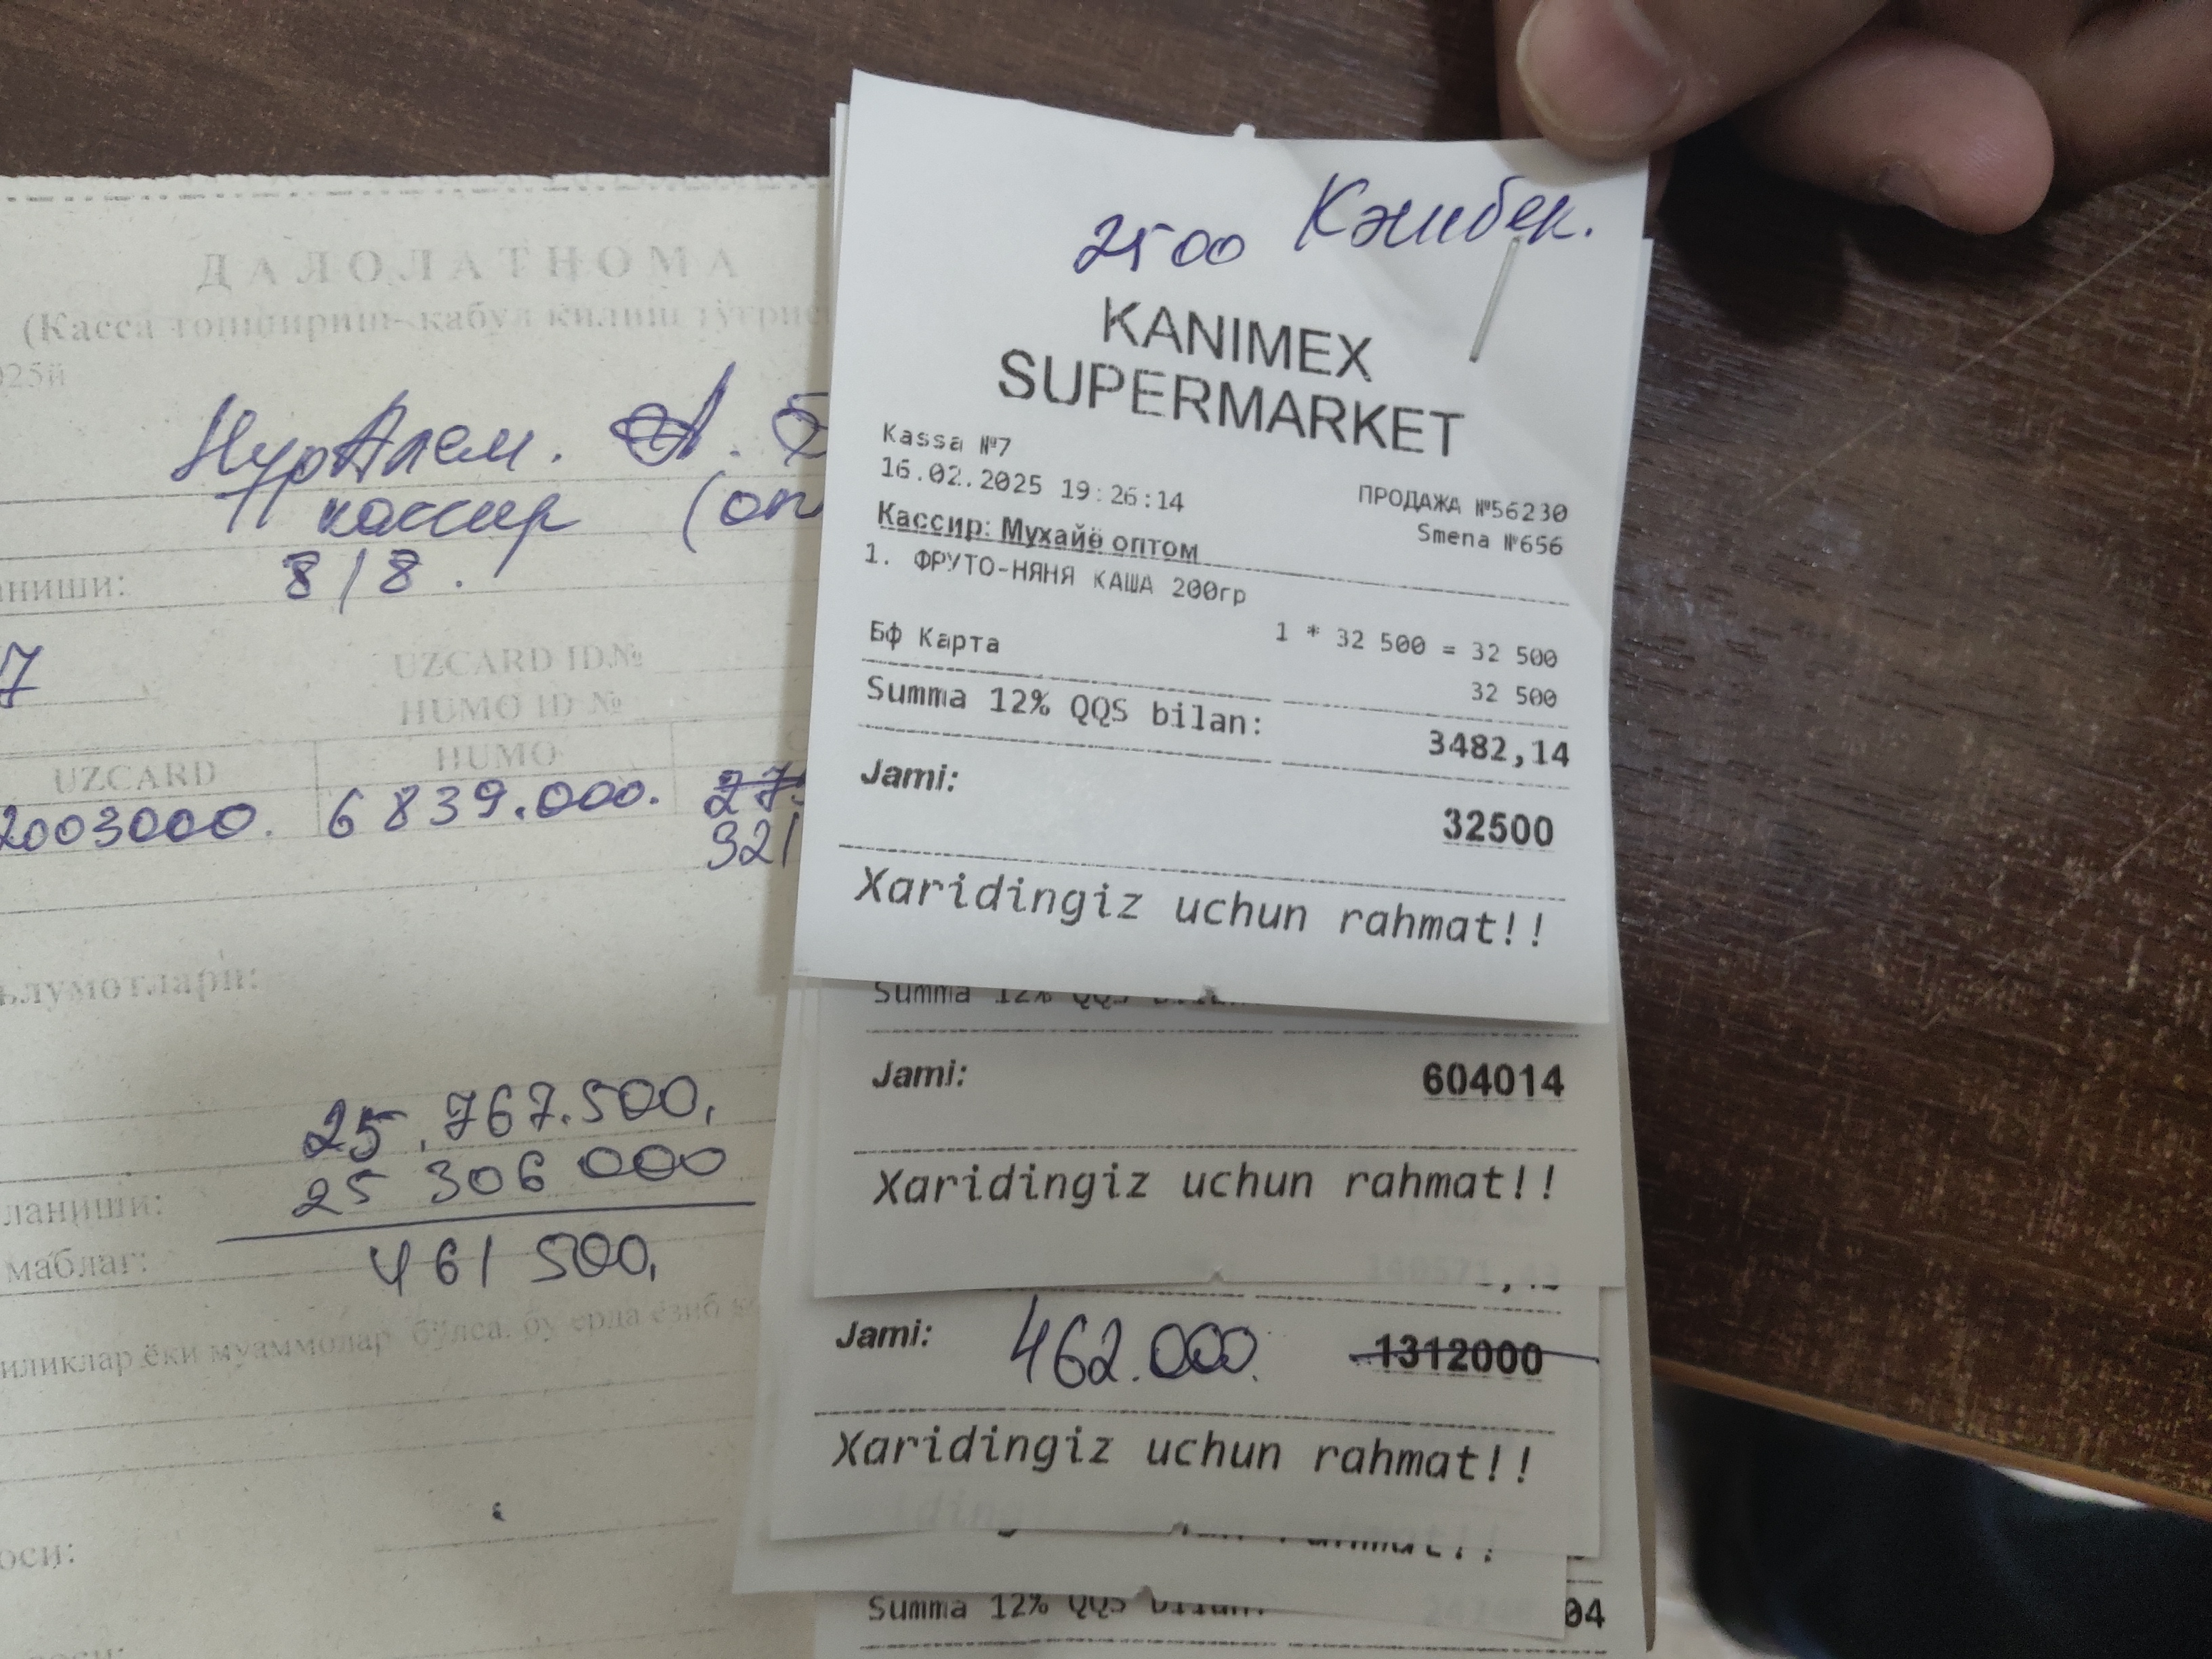 ДАЛОЛАТНОМА
(Касса топшириш-қабул қилиш тўғрис
025й
НурАлем. А. Б
кассир (оп
8/8.
ниши:
7
UZCARD ID№
HUMO ID №
UZCARD HUMO
2003000. 6839.000. 27.
921
ълумотлари:
25.767.500,
25 306 000
ланиши:
маблағ:
461 500,
иликлар ёки муаммолар бўлса, бу ерда ёзиб
оси:
2500 Кэшбек.
KANIMEX
SUPERMARKET
Kassa №7
16.02.2025 19:26:14
ПРОДАЖА №56230
Кассир: Мухайё оптом
Smena №656
1. ФРУТО-НЯНЯ КАША 200гр
1 * 32 500 = 32 500
Бф Карта 32 500
Summa 12% QQS bilan: 3482,14
Jami: 32500
Xaridingiz uchun rahmat!!
Summa 12% QQS bilan:
Jami: 604014
Xaridingiz uchun rahmat!!
Jami: 462.000. 1312000
Xaridingiz uchun rahmat!!
Summa 12% QQS bilan: 04